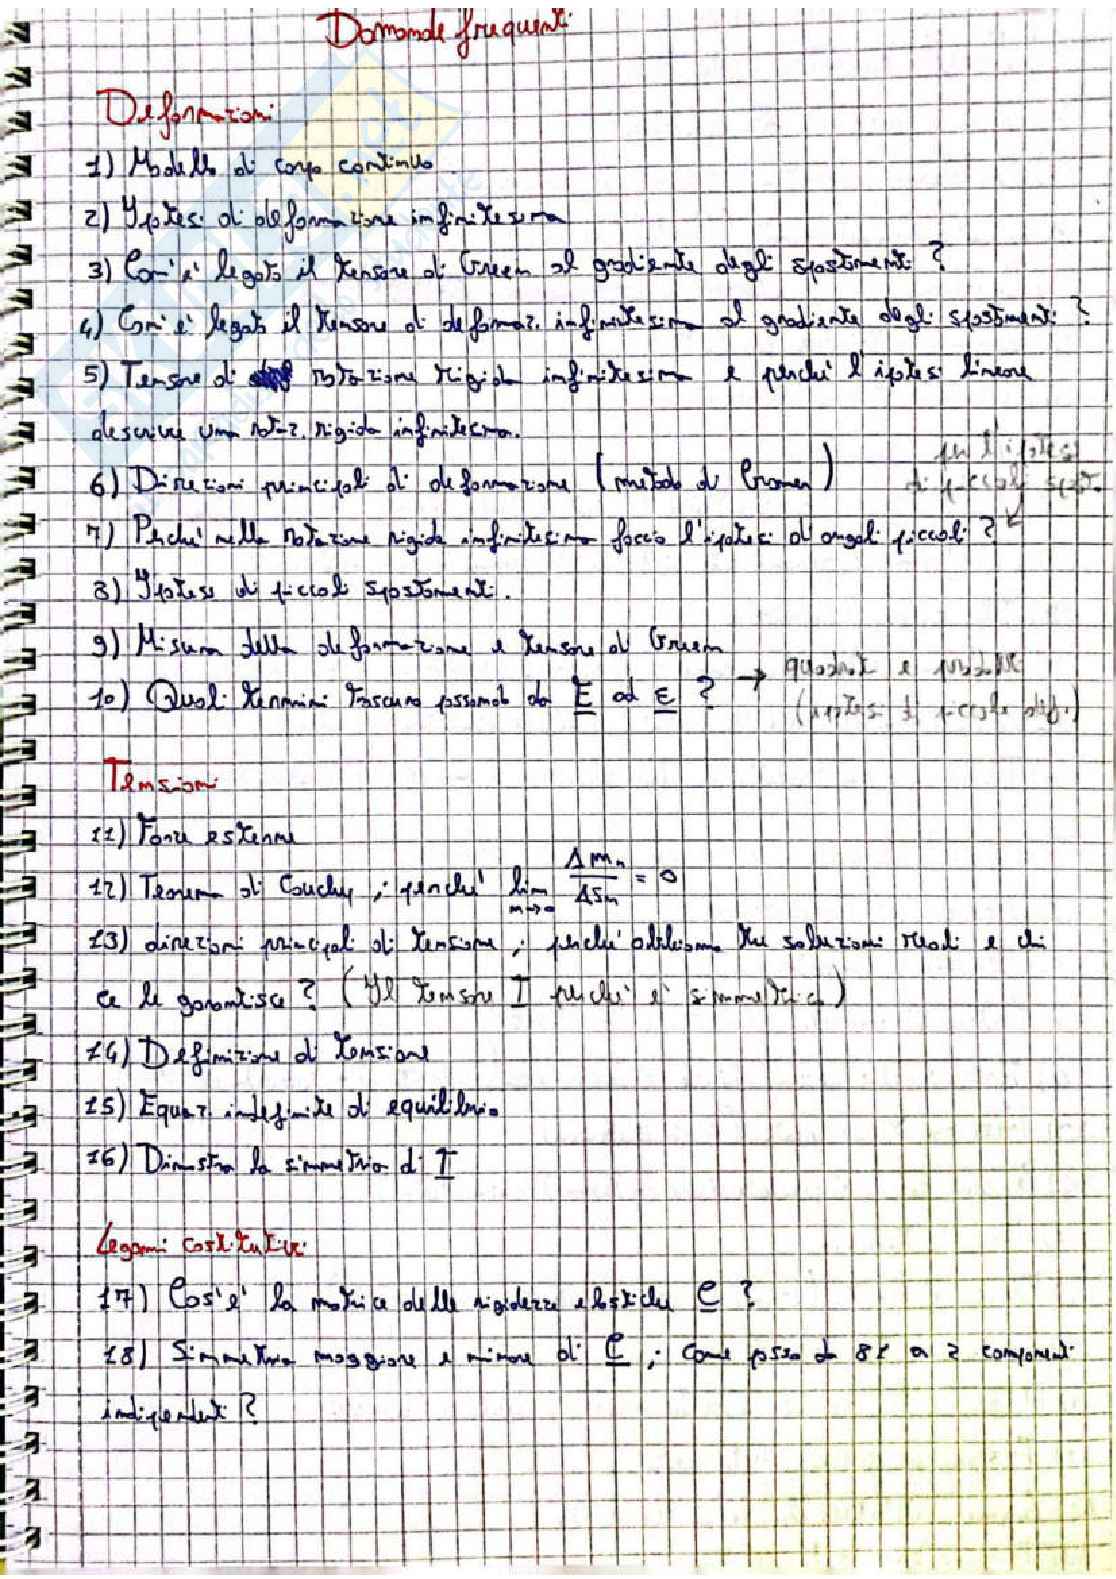 Domande frequenti
Deformazioni
1) Modello di corpo continuo.
2) Ipotesi di deformazione infinitesima
3) Com'è legato il tensore di Green al gradiente degli spostamenti?
4) Com'è legato il tensore di deformaz. infinitesima al gradiente degli spostamenti?
5) Tensore di rotazione rigida infinitesima e perché l'ipotesi lineare
descrive una rotaz. rigida infinitesima.
per l'ipotesi
di piccoli spost.
6) Direzioni principali di deformazione (metodo di Cramer)
7) Perché nella rotazione rigida infinitesima faccio l'ipotesi di angoli piccoli?
8) Ipotesi di piccoli spostamenti.
9) Misura della deformazione e tensore di Green
10) Quali termini trascuro passando da E ad ε? → quadrati e prodotti
(ipotesi di piccole def.)
Tensioni
11) Forze esterne
12) Teorema di Cauchy; perché lim n→∞ ΔMn/ΔSn = 0
13) direzioni principali di tensione; perché abbiamo tre soluzioni reali e chi
ce le garantisce? (Il tensore T perché è simmetrico)
14) Definizione di tensione
15) Equaz. indefinite di equilibrio
16) Dimostra la simmetria di T
Legami costitutivi
17) Cos'è la matrice delle rigidezze elastiche C?
18) Simmetria maggiore e minore di C; come passo da 81 a 2 componenti
indipendenti?